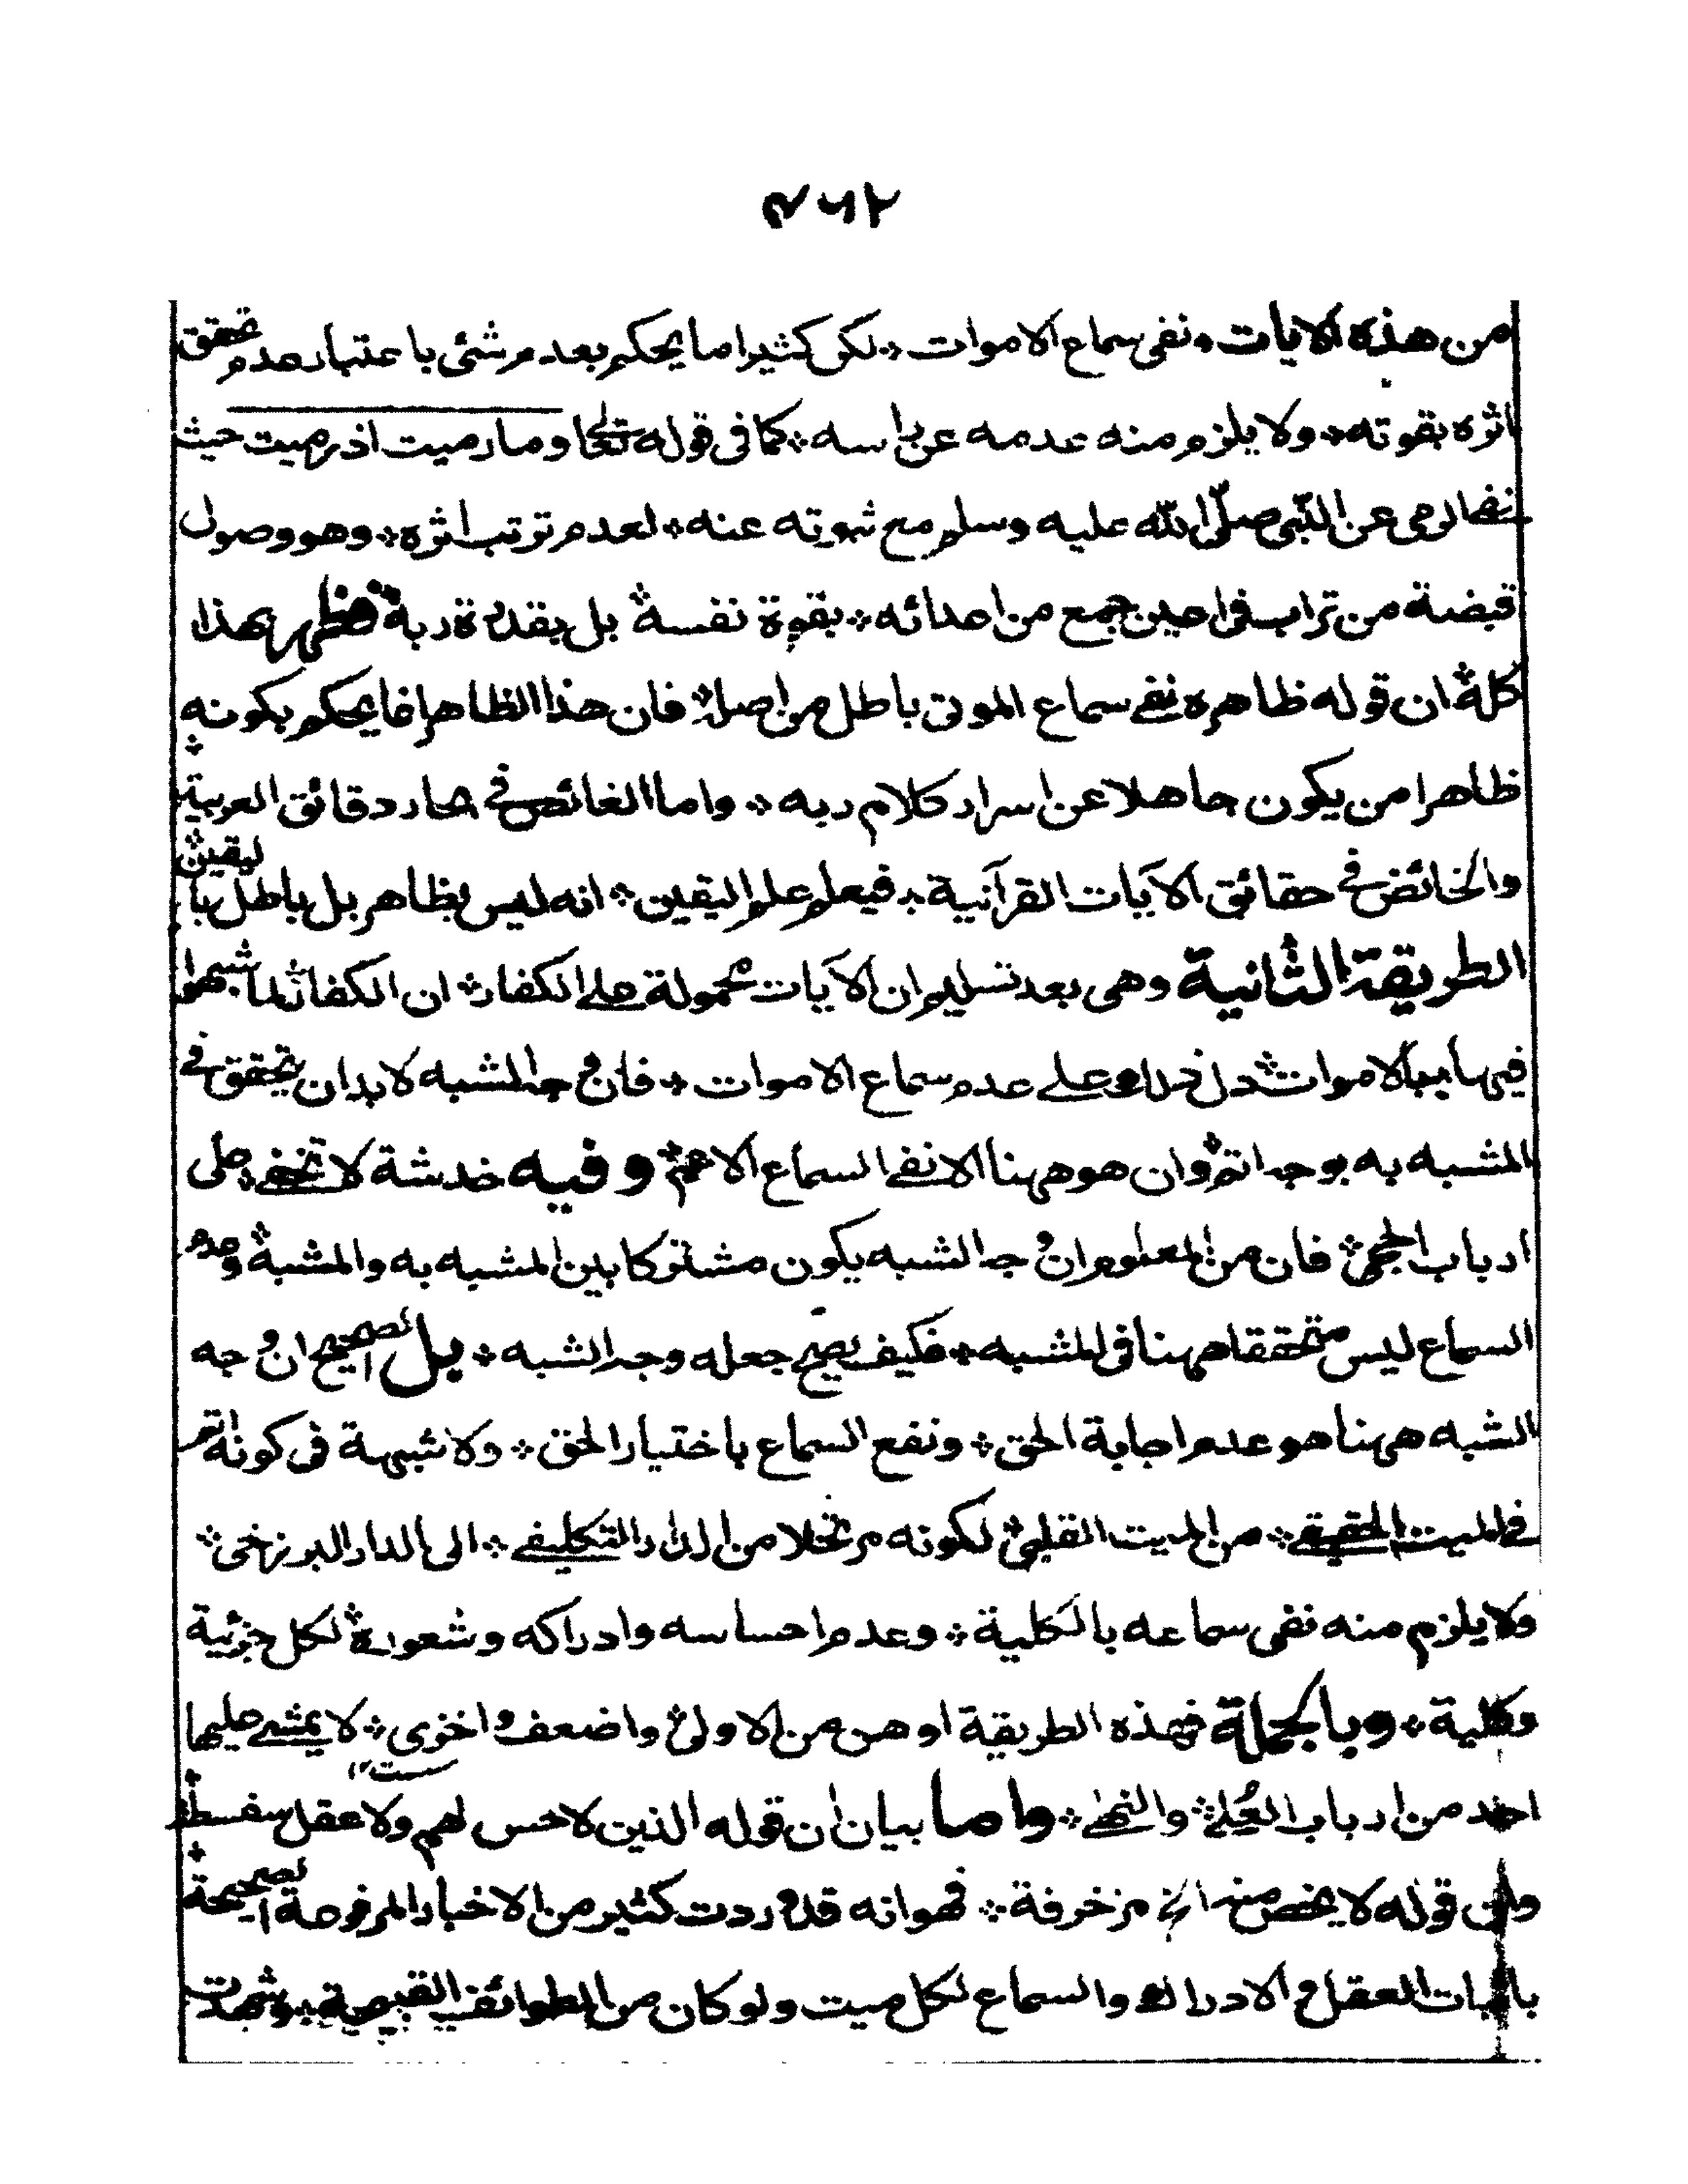 ۴۶۲
من هذه الايات ٭ نفى سماع الاموات ٭ لكن كثيرا ما يحكم بعدم شئى باعتبار عدم تحقق
اثره بقوته ٭ ولا يلزم منه عدمه عن راسه ٭ كما فى قوله تعالى وما رميت اذ رميت حيث
نفى الرمى عن النبى صلى الله عليه وسلم مع ثبوته عنه ٭ لعدم ترتب اثره ٭ وهو وصول
قبضة من تراب فى اعين جمع من اعدائه ٭ بقوة نفسه ٭ بل بقدرة ربه ٭ فظهر بهذا
كله ٭ ان قوله ظاهره نفى سماع الموتى باطل من اصله ٭ فان هذا الظاهر انما يحكم بكونه
ظاهرا من يكون جاهلا عن اسرار كلام ربه ٭ واما الغائص فى بحار دقائق العربية ٭
والخائض فى حقائق الآيات القرآنية ٭ فيعلم علم اليقين ٭ انه ليس بظاهر بل باطل باليقين ٭
الطريقة الثانية وهى بعد تسليم ان الآيات محمولة على الكفار ٭ ان الكفار لما شبهوا
فيها بالاموات ٭ دل ذلك على عدم سماع الاموات ٭ فان وجه الشبه لا بد ان يتحقق فى
المشبه به بوجه اتم ٭ وان هو ههنا الا نفى السماع الاعم ٭ وفيه خدشة لا تخفى على
ارباب الحجى ٭ فان من المعلوم ان وجه الشبه يكون مشتركا بين المشبه به والمشبه ٭ وعدم
السماع ليس متحققا ههنا فى المشبه ٭ فكيف يصح جعله وجه الشبه ٭ بل الصحيح ان وجه
الشبه ههنا هو عدم اجابة الحق ٭ ونفع السماع باختيار الحق ٭ ولا شبهة فى كونه اتم
فى الميت الحقيقى ٭ من الميت القلبى ٭ لكونه مرتحلا من الدار التكليفى ٭ الى الدار البرزخى ٭
ولا يلزم منه نفى سماعه بالكلية ٭ وعدم احساسه وادراكه وشعوره ٭ لكل جزئية
وكلية ٭ وبالجملة فهذه الطريقة اوهن من الاولى ٭ واضعف واخزى ٭ لا يمشى عليها
احد من ارباب العلى ٭ والنهى ٭ واما بيان ان قوله الذين لا حس لهم ولا عقل سفسطة ٭
وان قوله لا يخص منه الخ مزخرفة ٭ فهو انه قد وردت كثير من الاخبار المرفوعة الصحيحة ٭
باثبات العقل والادراك والسماع لكل ميت ولو كان من الطوائف القبيحة ٭ وشهدت